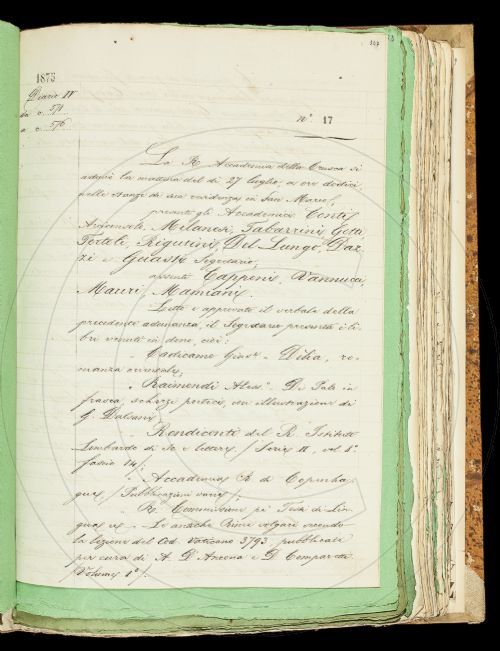 107
1875
Diario IV
da c. 571
a c. 576
N.° 17
La R. Accademia della Crusca si
adunò la mattina del dì 27 luglio, a ore dodici,
nelle stanze di sua residenza in San Marco,
presenti gli Accademici Conti,
Arciconsolo, Milanesi, Tabarrini, Gotti
Tortoli, Rigutini, Del Lungo, Daz-
zi e Guasti Segretario;
assenti Capponi, Vannucci,
Mauri, Mamiani.
Letto e approvato il verbale della
precedente adunanza, il Segretario presenta i li-
bri venuti in dono, cioè:
Cadicamo Gius.e Dilia, ro-
manza orientale;
Raimondi Aless.° Di Palo in
frasca, scherzi poetici, con illustrazioni di
G. Dalsani
Rendiconti del R. Istituto
Lombardo di Sc. e lettere, (Serie II, vol. 8°
fascic. 14);
Accademia R. di Copenha-
guen (Pubblicazioni varie);
R. Commissione pe' Testi di Lin-
gua - Le antiche Rime volgari secondo
la lezione del Cod. Vaticano 3793 pubblicate
per cura di A. D'Ancona e D. Comparetti
(Volume 1°).